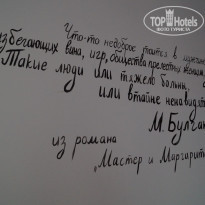 Что-то недоброе таится в мужчинах,
избегающих вина, игр, общества прелестных женщин,
Такие люди или тяжело больны,
или втайне ненавидят
М. Булгаков
из романа
„Мастер и Маргарита"
TOP Hotels
ФОТО ТУРИСТА